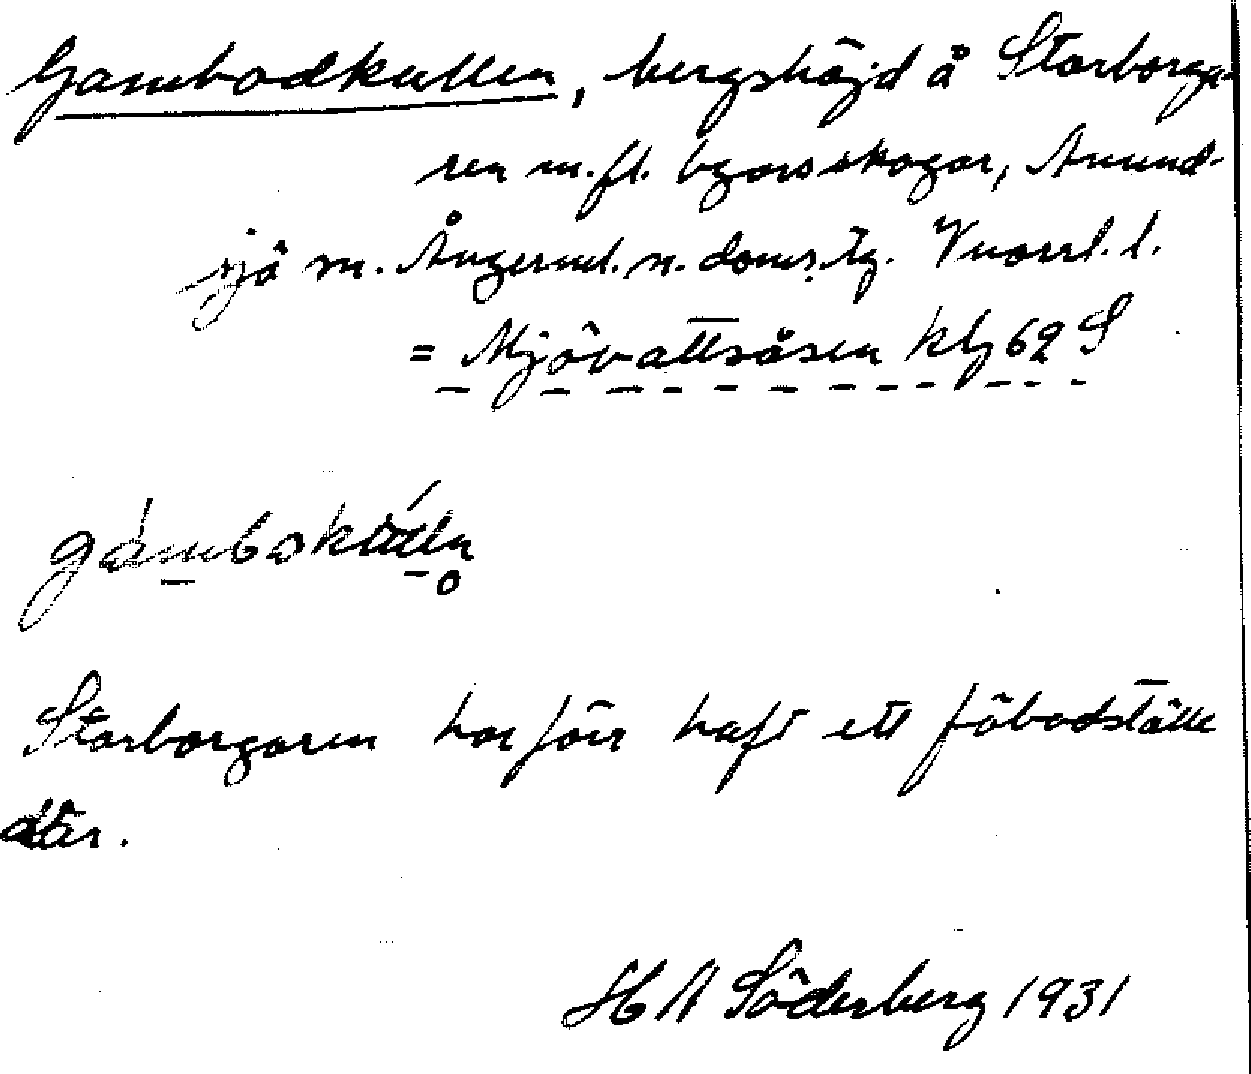 Gambodkullen, bergshöjd å Storborga-
ren m.fl. byars skogar, Anund-
sjö sn. Ångerml. n. doms. tg. Västerrl. l.
= Mjövattsåsen kbl 62 S
gámbskúlln̥
Storborgaren har förr haft ett fäbodställe
där.
H A Söderberg 1931